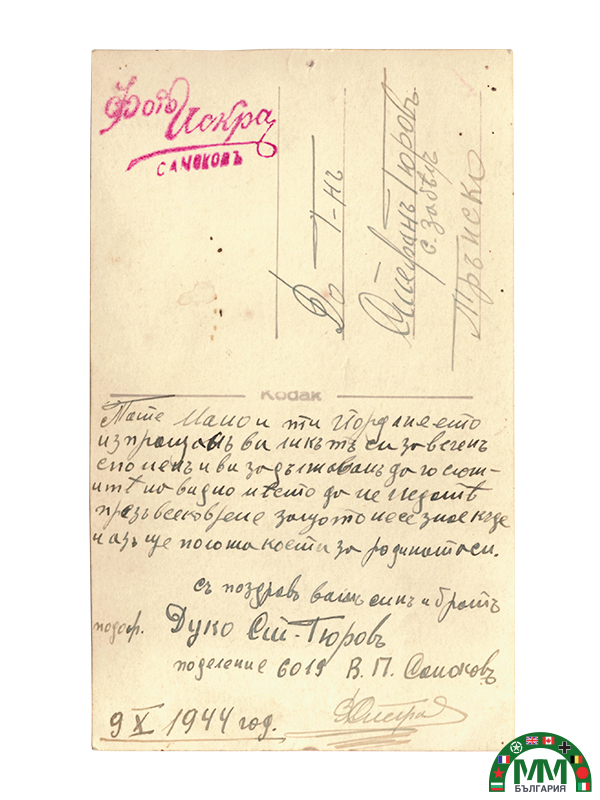 Фото Искра
САМОКОВЪ
До Г-нъ
Стефанъ Гюровъ
с. Забѣлъ
Трънско
Kodak
Тате Мамо и ти Йордане ето
изпращамъ ви ликътъ си за веченъ
споменъ и ви задължавамъ да го сложи-
ите на видно място да ме гледате
презъ всеко време защото не се знае къде
и азъ ще положа кости за родината си.
съ поздравъ вашъ синъ и братъ
подоф. Дуко Ст. Гюровъ
поделение 6019 В. П. Самоковъ
9 X 1944 год.
ММ
БЪЛГАРИЯ